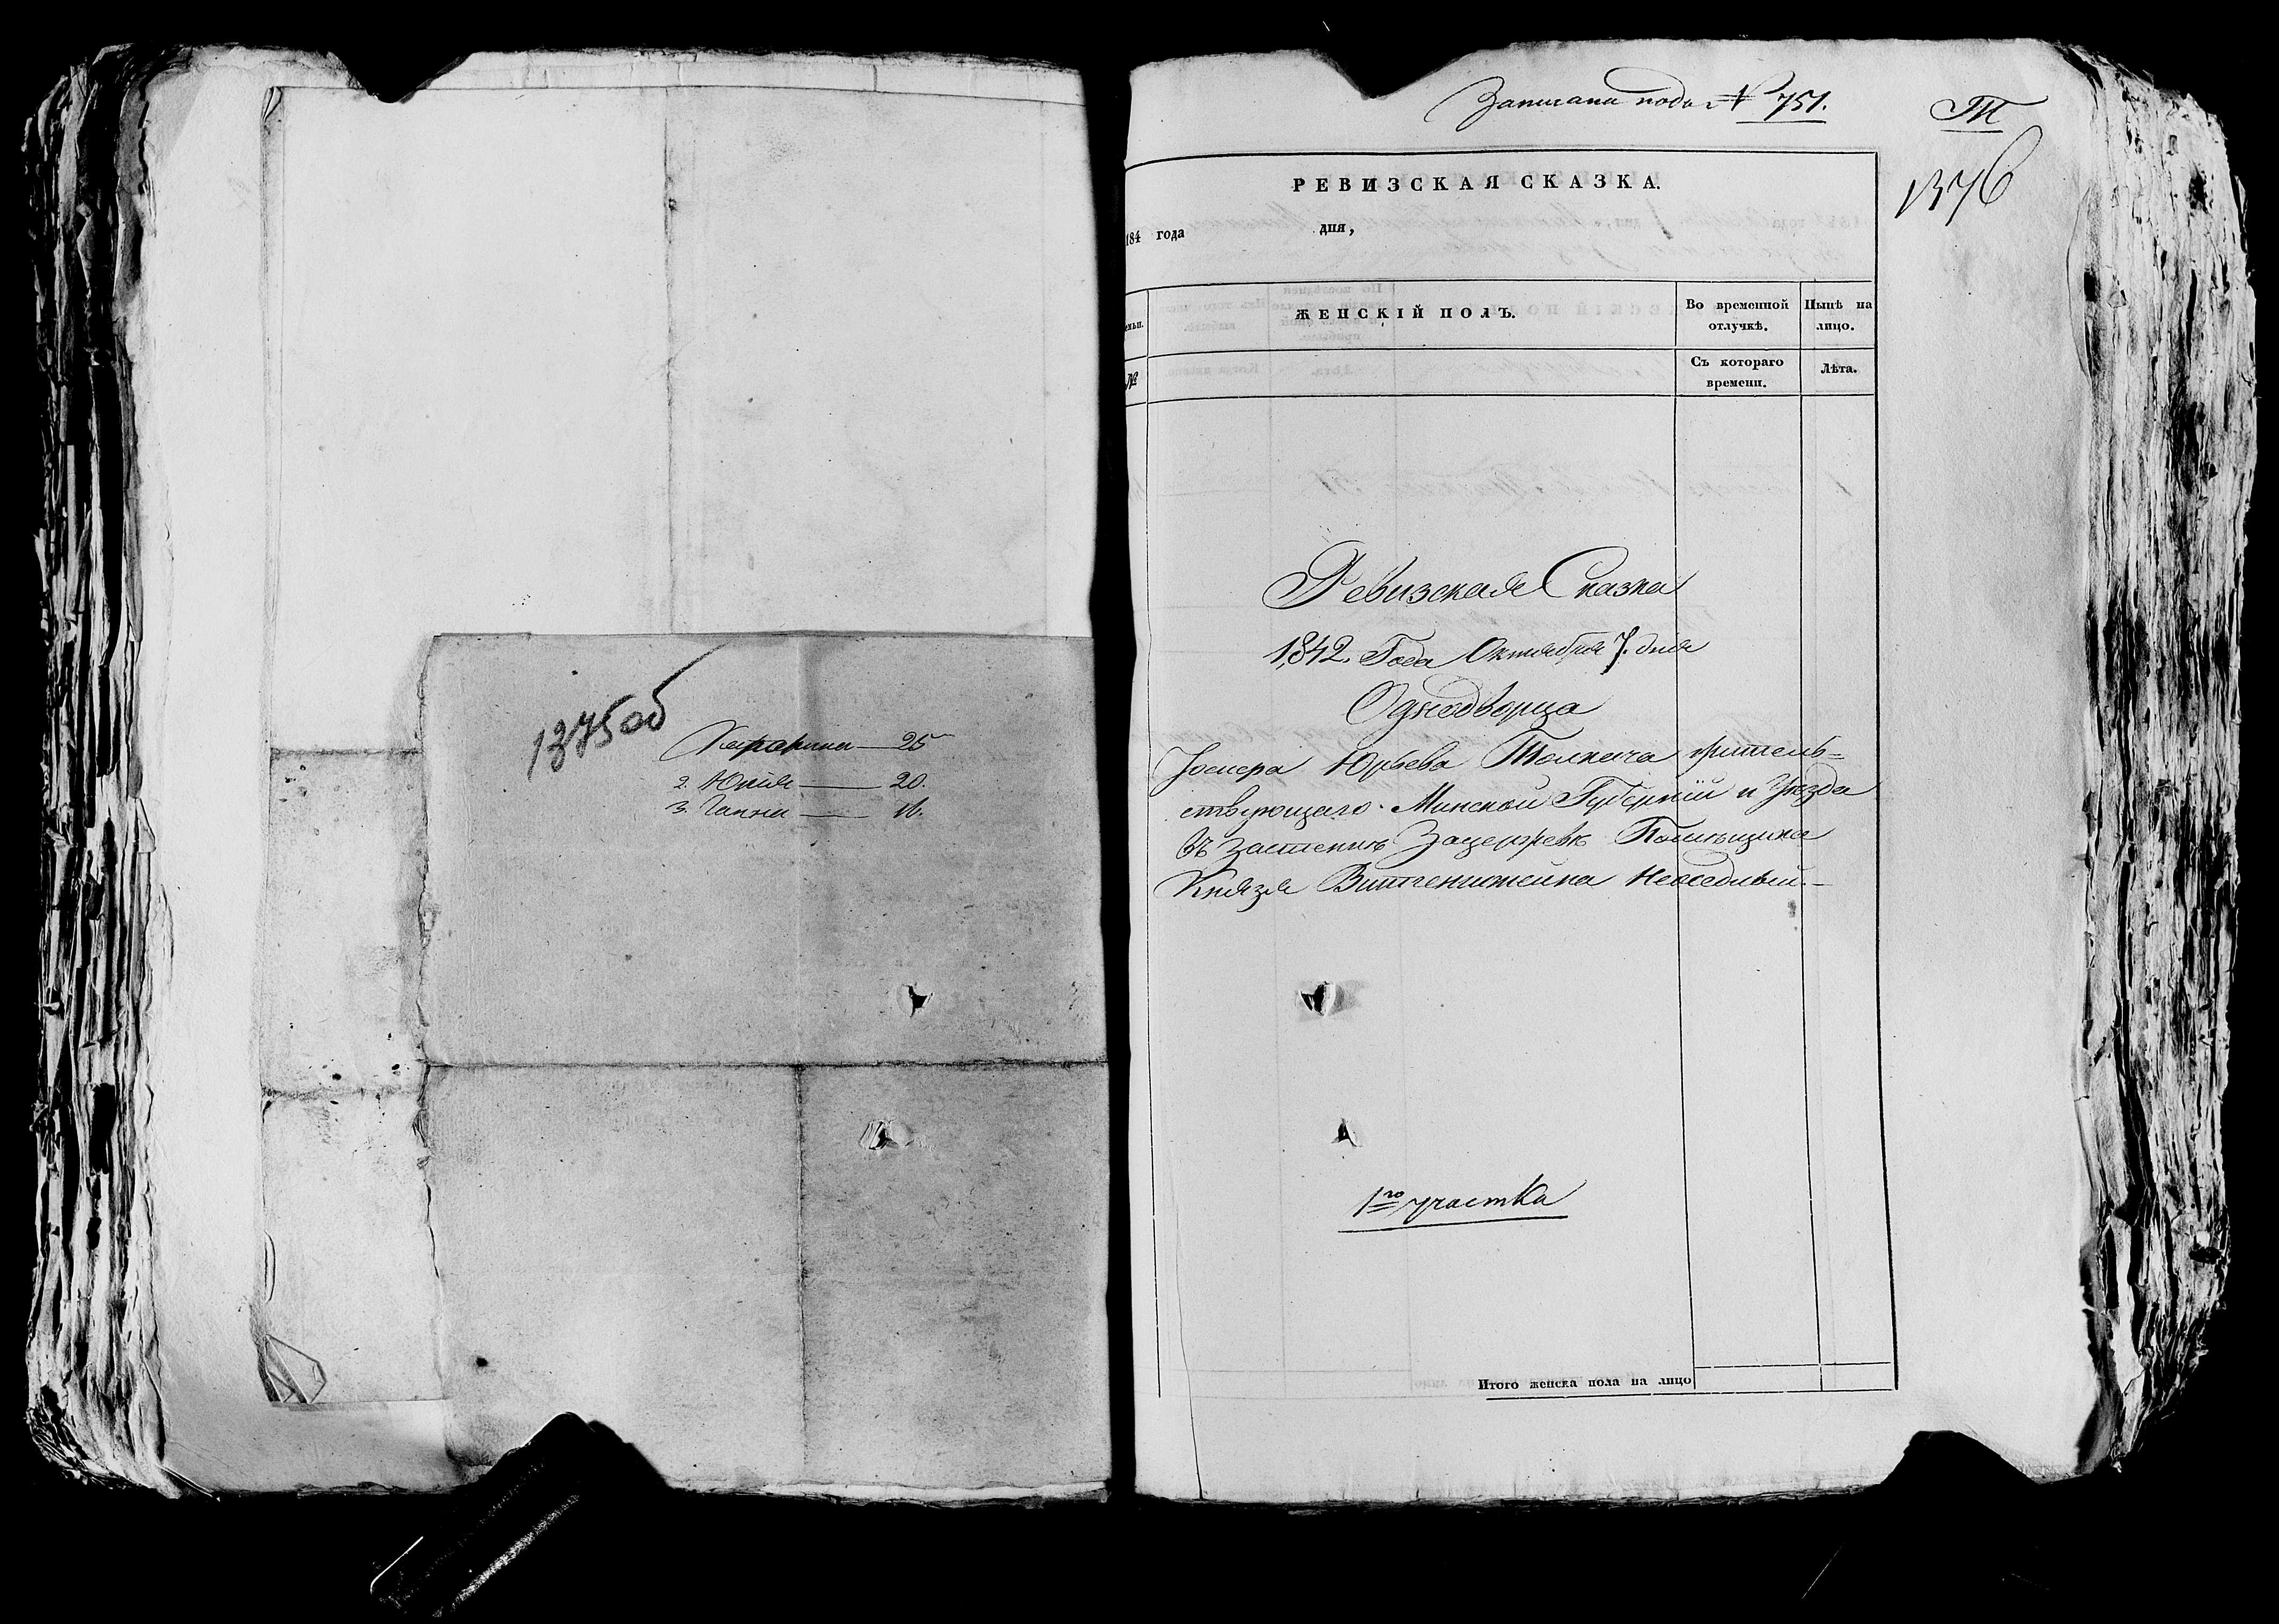 1375об
Катерина — 25
2. Юлія — 20.
3. Ганна — 16.
Записана подъ № 751.
Т
1376
РЕВИЗСКАЯ СКАЗКА.
184 года дня,
ЖЕНСКІЙ ПОЛЪ.
Во временной отлучкѣ.
Нынѣ на лицо.
№
Съ котораго времени.
Лѣта.
Ревизская Сказка
1842. Года Октября 7. дня
Однодворца
Іосифа Юрьева Толкача житель=
ствующаго Минской Губерніи и Уѣзда
въ Застенкѣ Помѣщика
Князя Витгенштейна Неоседлый.—
1го участка
Итого женска пола на лицо